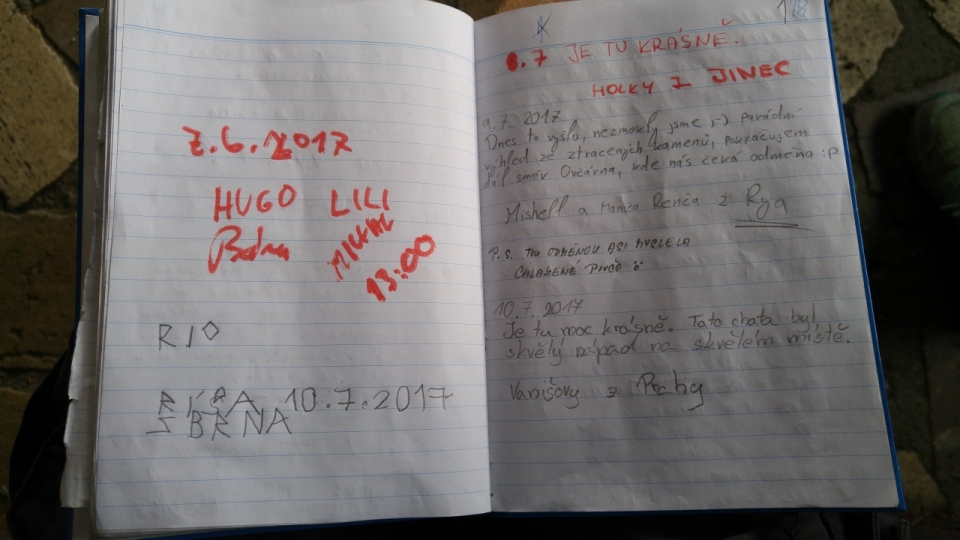 7.6.2017
HUGO LILI
13:00
RIO
RÍŠA 10.7.2017
S BRNA
8.7 JE TU KRÁSNĚ.
HOLKY Z JINEC
9.7.2017
Dnes to vyšlo, nezmokly jsme ;-) Parádní
výhled ze ztracených kamenů, pokračujem
dál směr Ovčárna, kde nás čeká odměna :P
Mishell a mamča Renča z
P.S. TOU ODMĚNOU ASI MYSLELA
CHLAZENÉ PIVČO
10.7.2017
Je tu moc krásně. Tato chata byl
skvělý nápad na skvělém místě.
Vanišovy z Prahy